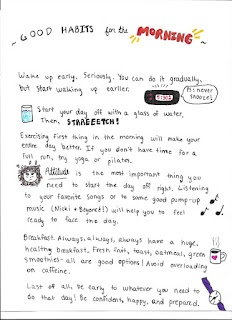 ~ GOOD HABITS for the MORNING ~
Wake up early. Seriously. You can do it gradually,
but start waking up earlier.
PS: never
snooze!
Start your day off with a glass of water.
Then, STREEEETCH!
Exercising first thing in the morning will make your
entire day better. If you don't have time for a
full run, try yoga or pilates.
Attitude is the most important thing you
need to start the day off right. Listening
to your favorite songs or to some good pump-up
music (Nicki + Beyoncé!) will help you to feel
ready to face the day.
Breakfast. Always, always, always have a huge,
healthy breakfast. Fresh fruit, toast, oatmeal, green
smoothies- all are good options! Avoid overloading
on caffeine.
Last of all, be early to whatever you need to
do that day! Be confident, happy, and prepared.